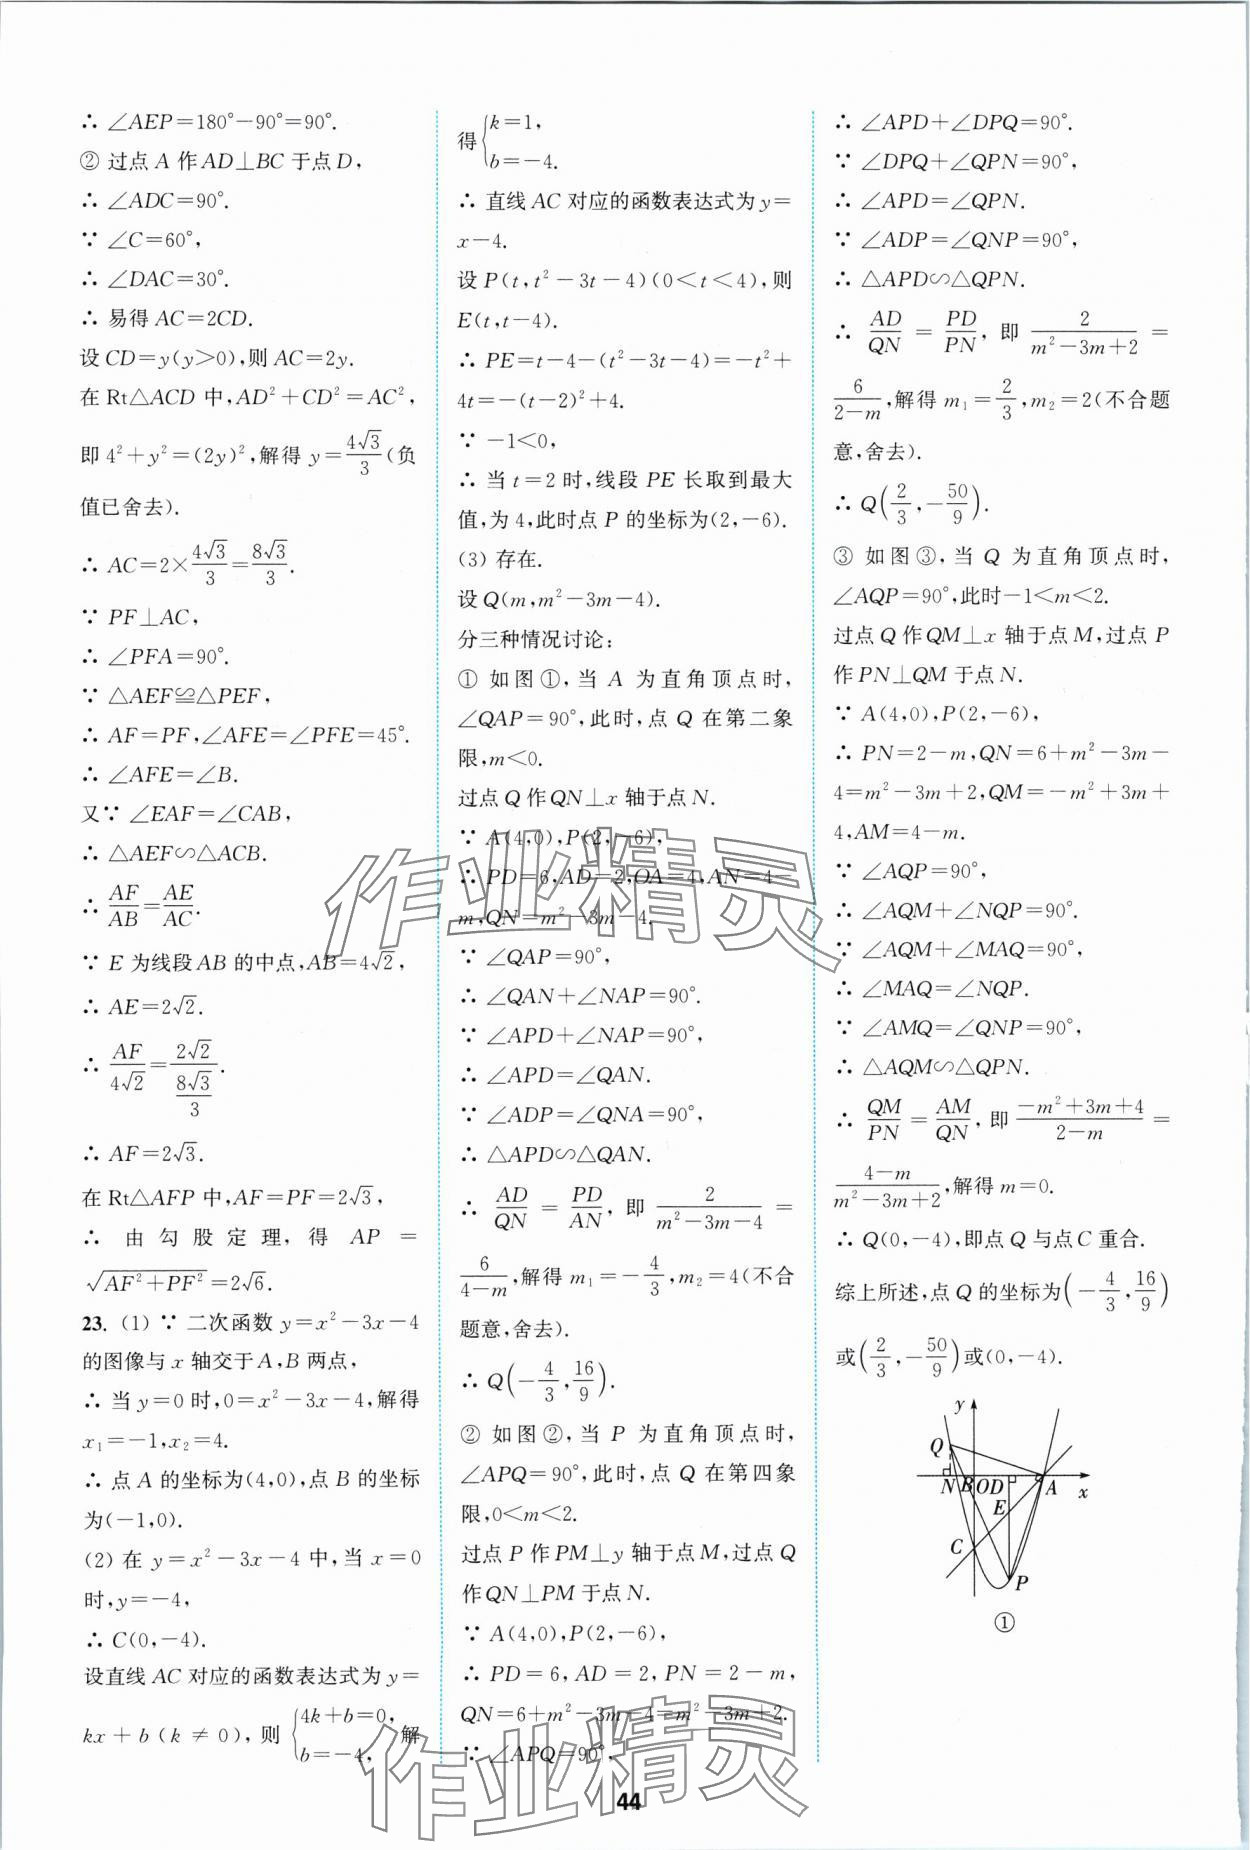 ∴ ∠AEP=180°-90°=90°.
② 过点 A 作 AD⊥BC 于点 D,
∴ ∠ADC=90°.
∵ ∠C=60°,
∴ ∠DAC=30°.
∴ 易得 AC=2CD.
设 CD=y(y>0),则 AC=2y.
在 Rt△ACD 中,AD²+CD²=AC²,
即 4²+y²=(2y)²,解得 y=4√3/3(负
值已舍去).
∴ AC=2×4√3/3=8√3/3.
∵ PF⊥AC,
∴ ∠PFA=90°.
∵ △AEF≌△PEF,
∴ AF=PF,∠AFE=∠PFE=45°.
∴ ∠AFE=∠B.
又∵ ∠EAF=∠CAB,
∴ △AEF∽△ACB.
∴ AF/AB=AE/AC.
∵ E 为线段 AB 的中点,AB=4√2,
∴ AE=2√2.
∴ AF/(4√2)=2√2/(8√3/3).
∴ AF=2√3.
在 Rt△AFP 中,AF=PF=2√3,
∴ 由勾股定理,得 AP=
√(AF²+PF²)=2√6.
23. (1) ∵ 二次函数 y=x²-3x-4
的图像与 x 轴交于 A,B 两点,
∴ 当 y=0 时,0=x²-3x-4,解得
x₁=-1,x₂=4.
∴ 点 A 的坐标为(4,0),点 B 的坐标
为(-1,0).
(2) 在 y=x²-3x-4 中,当 x=0
时,y=-4,
∴ C(0,-4).
设直线 AC 对应的函数表达式为 y=
kx+b(k≠0),则 {4k+b=0, b=-4, 解
得 {k=1, b=-4.
∴ 直线 AC 对应的函数表达式为 y=
x-4.
设 P(t,t²-3t-4)(0<t<4),则
E(t,t-4).
∴ PE=t-4-(t²-3t-4)=-t²+
4t=-(t-2)²+4.
∵ -1<0,
∴ 当 t=2 时,线段 PE 长取到最大
值,为 4,此时点 P 的坐标为(2,-6).
(3) 存在.
设 Q(m,m²-3m-4).
分三种情况讨论:
① 如图①,当 A 为直角顶点时,
∠QAP=90°,此时,点 Q 在第二象
限,m<0.
过点 Q 作 QN⊥x 轴于点 N.
∵ A(4,0),P(2,-6),
∴ PD=6,AD=2,OA=4,AN=4-
m,QN=m²-3m-4.
∵ ∠QAP=90°,
∴ ∠QAN+∠NAP=90°.
∵ ∠APD+∠NAP=90°,
∴ ∠APD=∠QAN.
∵ ∠ADP=∠QNA=90°,
∴ △APD∽△QAN.
∴ AD/QN=PD/AN,即 2/(m²-3m-4)=
6/(4-m),解得 m₁=-4/3,m₂=4(不合
题意,舍去).
∴ Q(-4/3,16/9).
② 如图②,当 P 为直角顶点时,
∠APQ=90°,此时,点 Q 在第四象
限,0<m<2.
过点 P 作 PM⊥y 轴于点 M,过点 Q
作 QN⊥PM 于点 N.
∵ A(4,0),P(2,-6),
∴ PD=6,AD=2,PN=2-m,
QN=6+m²-3m-4=m²-3m+2.
∵ ∠APQ=90°,
∴ ∠APD+∠DPQ=90°.
∵ ∠DPQ+∠QPN=90°,
∴ ∠APD=∠QPN.
∵ ∠ADP=∠QNP=90°,
∴ △APD∽△QPN.
∴ AD/QN=PD/PN,即 2/(m²-3m+2)=
6/(2-m),解得 m₁=2/3,m₂=2(不合题
意,舍去).
∴ Q(2/3,-50/9).
③ 如图③,当 Q 为直角顶点时,
∠AQP=90°,此时-1<m<2.
过点 Q 作 QM⊥x 轴于点 M,过点 P
作 PN⊥QM 于点 N.
∵ A(4,0),P(2,-6),
∴ PN=2-m,QN=6+m²-3m-
4=m²-3m+2,QM=-m²+3m+
4,AM=4-m.
∵ ∠AQP=90°,
∴ ∠AQM+∠NQP=90°.
∵ ∠AQM+∠MAQ=90°,
∴ ∠MAQ=∠NQP.
∵ ∠AMQ=∠QNP=90°,
∴ △AQM∽△QPN.
∴ QM/PN=AM/QN,即 (-m²+3m+4)/(2-m)=
(4-m)/(m²-3m+2),解得 m=0.
∴ Q(0,-4),即点 Q 与点 C 重合.
综上所述,点 Q 的坐标为(-4/3,16/9)
或(2/3,-50/9)或(0,-4).
y
Q
N B O D A x
E
C
P
①
作业精灵
作业精灵
44